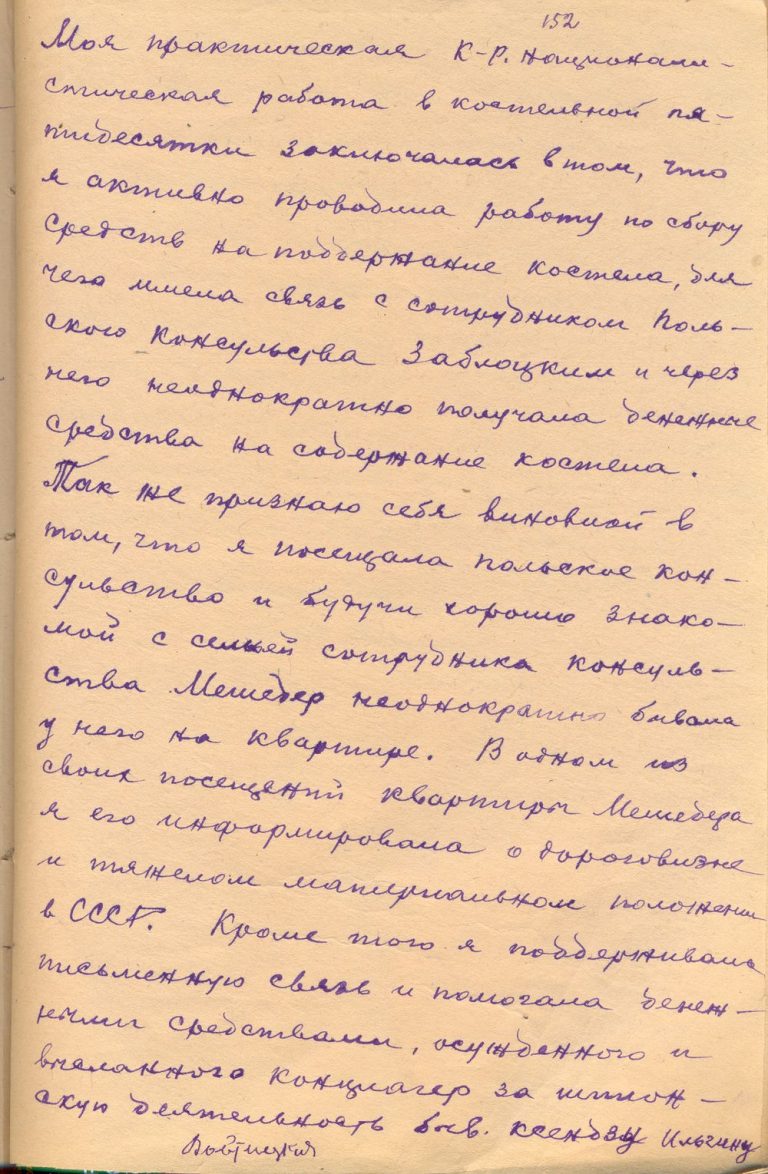 152
Моя практическая к-р. национали-
стическая работа в костельной пя-
тидесятки заключалась в том, что
я активно проводила работу по сбору
средств на поддержание костела, для
чего имела связь с сотрудником Поль-
ского консульства Заблоцким и через
него неоднократно получала денежные
средства на содержание костела.
Так же признаю себя виновной в
том, что я посещала польское кон-
сульство и будучи хорошо знако-
мой с семьей сотрудника консуль-
ства Мешебер неоднократно бывала
у него на квартире. В одном из
своих посещений квартиры Мешебера
я его информировала о дороговизне
и тяжелом материальном положении
в СССР. Кроме того я поддерживала
письменную связь и помогала денеж-
ными средствами, осужденного и
высланного концлагер за шпион-
скую деятельность быв. ксендзу Ильгину